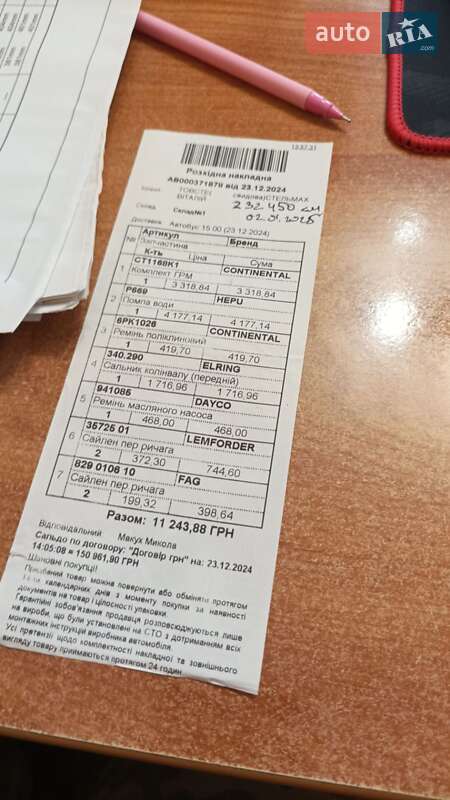 auto RIA .com
13:37:31
Розхідна накладна
АВ000371879 від 23.12.2024
ТОВСТЕН (видави)СТЕЛЬМАХ
ВІТАЛІЙ
232 450 км
Склад Склад№1
02.01.2025
Доставка Автобус 15:00 (23.12.2024)
№ Артикул Бренд
Запчастина
К-ть Ціна Сума
CT1168K1 CONTINENTAL
1 Комплект ГРМ
1 3 318,84 3 318,84
P669 HEPU
2 Помпа води
1 4 177,14 4 177,14
6PK1026 CONTINENTAL
3 Ремінь поліклиновий
1 419,70 419,70
340.290 ELRING
4 Сальник колінвалу (передній)
1 1 716,96 1 716,96
941085 DAYCO
5 Ремінь масляного насоса
1 468,00 468,00
35725 01 LEMFORDER
6 Сайлен пер ричага
2 372,30 744,60
829 0106 10 FAG
7 Сайлен пер ричага
2 199,32 398,64
Разом: 11 243,88 ГРН
Відповідальний Макух Микола
Сальдо по договору: "Договір грн" на: 23.12.2024
14:05:08 = 150 961,90 ГРН
Шановні покупці!
Придбаний товар можна повернути або обміняти протягом
календарних днів з моменту покупки за наявності
документів на товар і цілосності упаковки.
Гарантійні зобов'язання продавця розповсюджуються лише
на вироби, що були установлені на СТО з дотриманням всіх
монтажних інструкцій виробника автомобіля.
Усі претензії щодо комплектності накладної та зовнішнього
вигляду товару приймаються протягом 24 годин